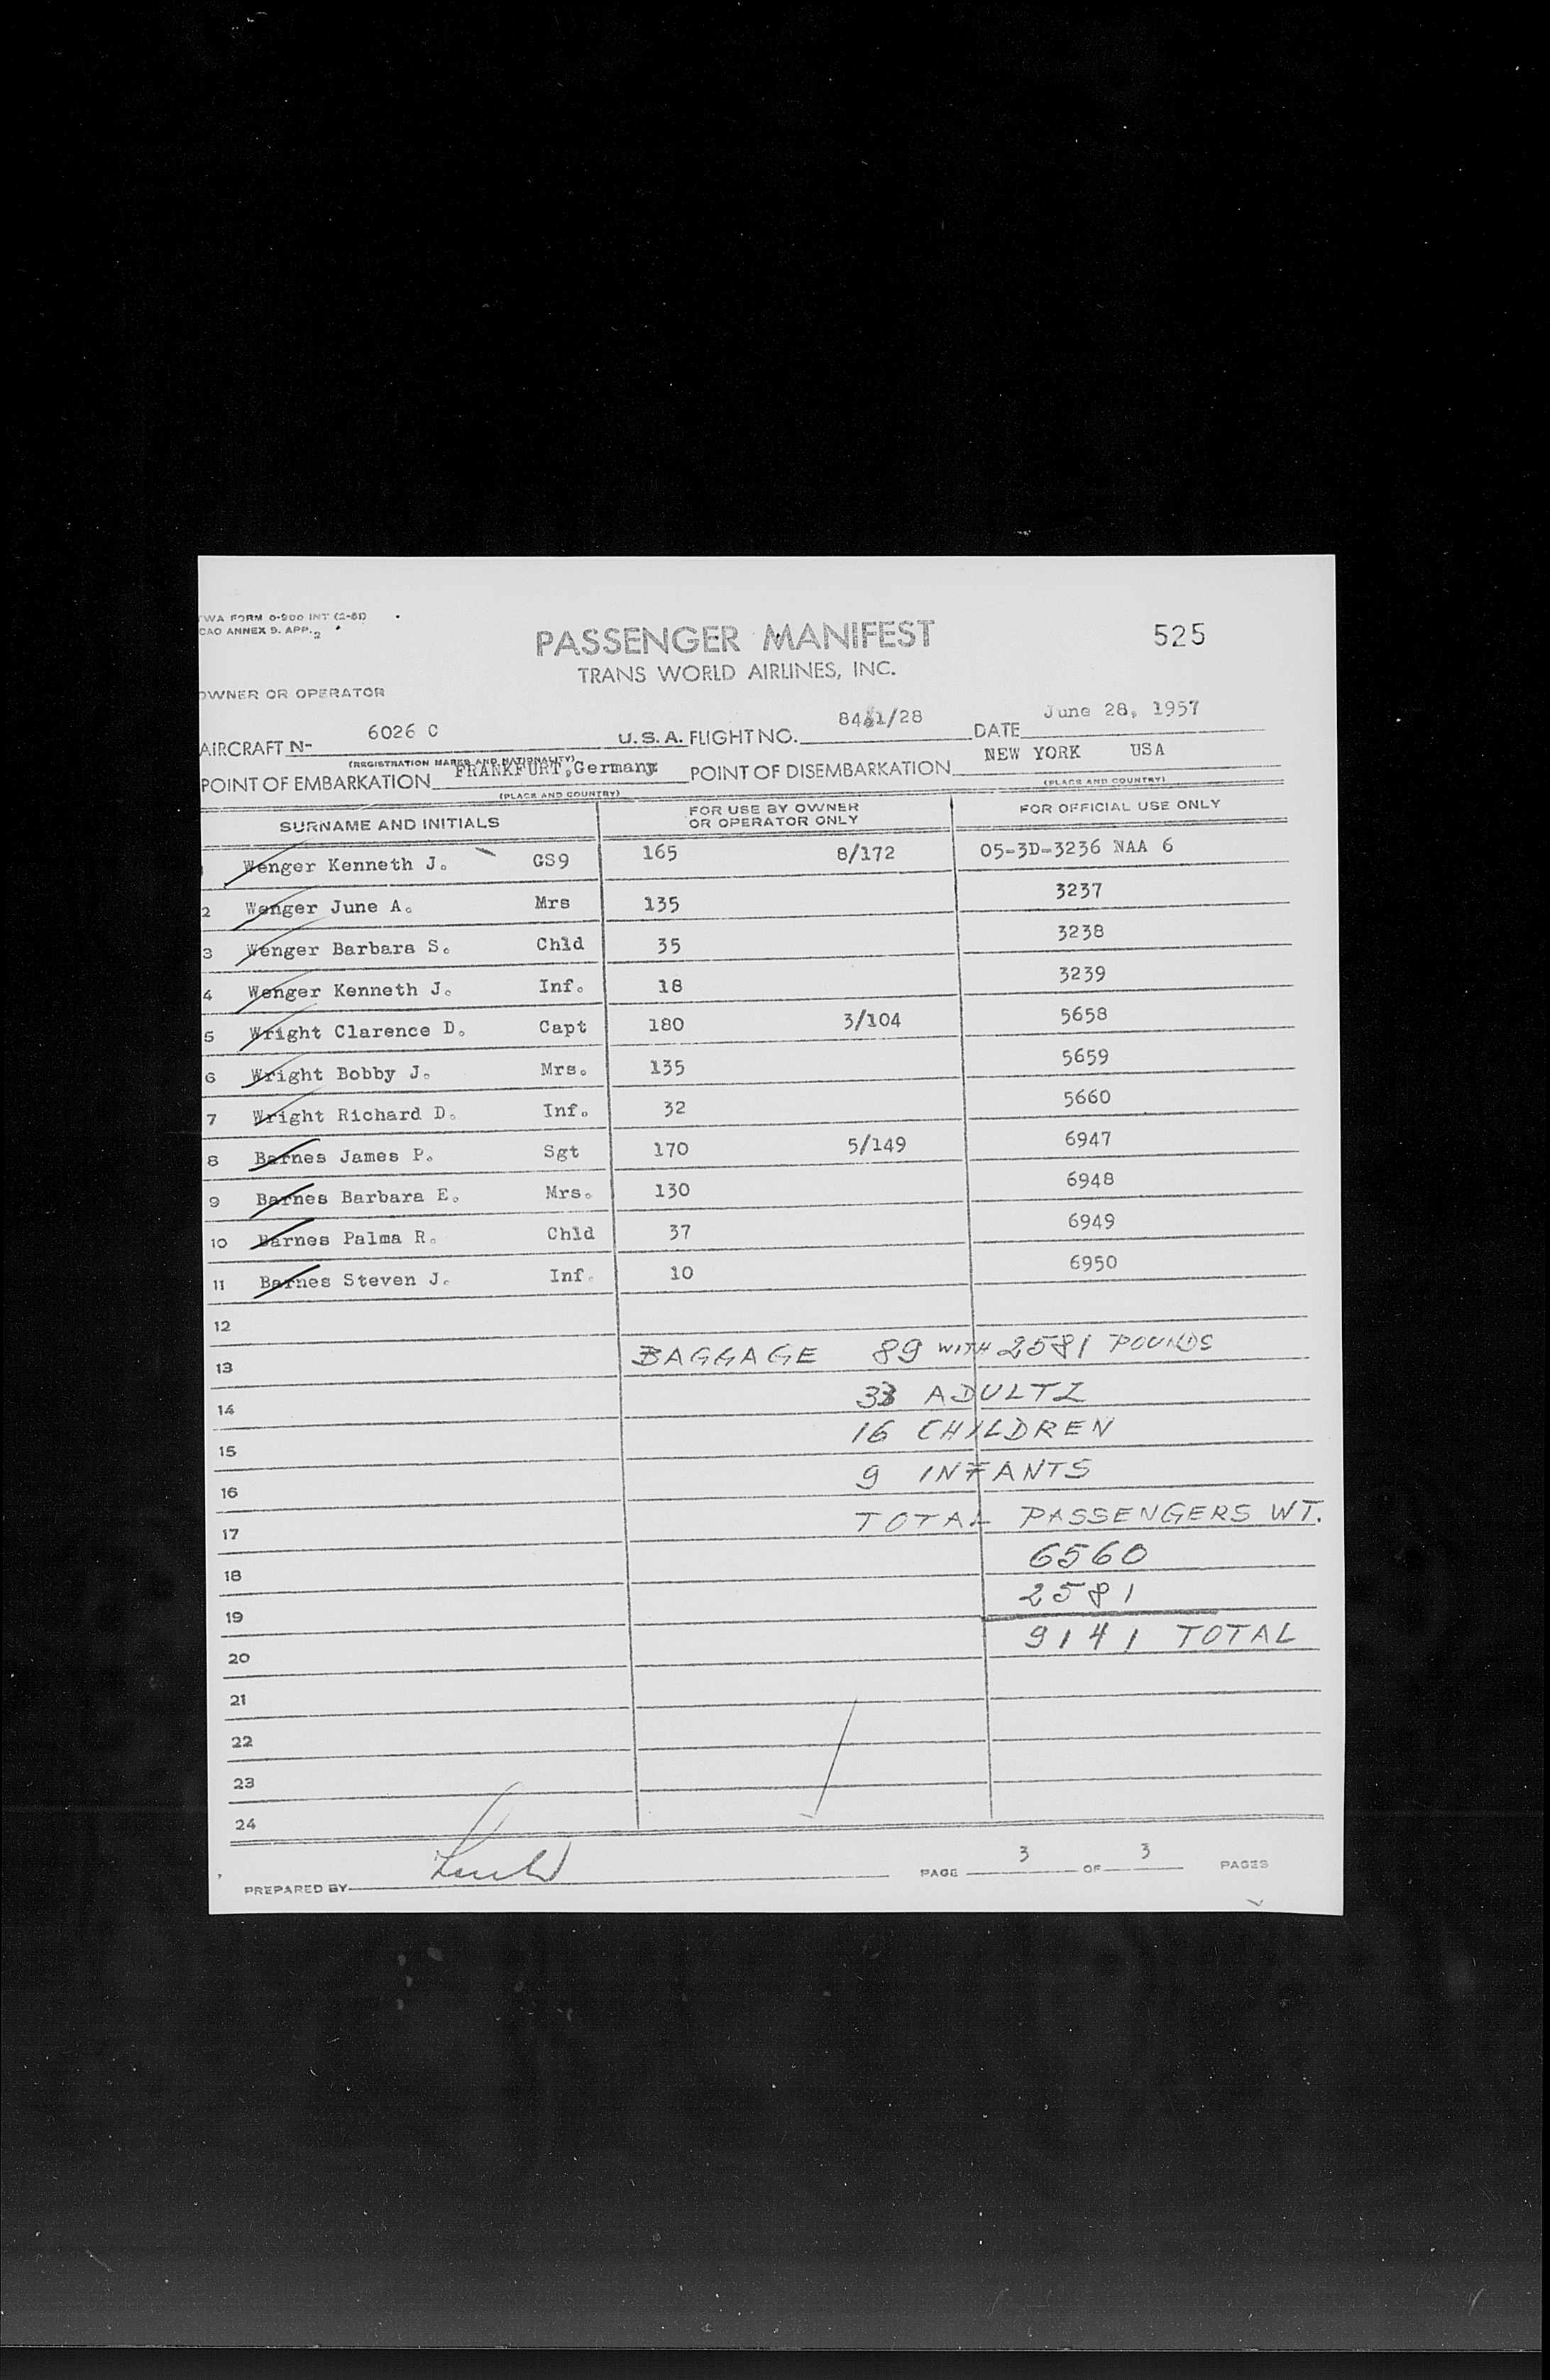 TWA FORM 0-900 INT (2-51)
ICAO ANNEX 9. APP. 2
PASSENGER MANIFEST
525
TRANS WORLD AIRLINES, INC.
OWNER OR OPERATOR
AIRCRAFT N- 6026 C U.S.A. FLIGHT NO. 8481/28 DATE June 28, 1957
(REGISTRATION MARKS AND NATIONALITY)
POINT OF EMBARKATION FRANKFURT, Germany POINT OF DISEMBARKATION NEW YORK USA
(PLACE AND COUNTRY) (PLACE AND COUNTRY)
SURNAME AND INITIALS FOR USE BY OWNER OR OPERATOR ONLY FOR OFFICIAL USE ONLY
1 Wenger Kenneth J. GS9 165 8/172 05-3D-3236 NAA 6
2 Wenger June A. Mrs 135 3237
3 Wenger Barbara S. Chld 35 3238
4 Wenger Kenneth J. Inf. 18 3239
5 Wright Clarence D. Capt 180 3/104 5658
6 Wright Bobby J. Mrs. 135 5659
7 Wright Richard D. Inf. 32 5660
8 Barnes James P. Sgt 170 5/149 6947
9 Barnes Barbara E. Mrs. 130 6948
10 Barnes Palma R. Chld 37 6949
11 Barnes Steven J. Inf. 10 6950
12
13 BAGGAGE 89 WITH 2581 POUNDS
14 33 ADULTZ
15 16 CHILDREN
16 9 INFANTS
17 TOTAL PASSENGERS WT.
18 6560
19 2581
20 9141 TOTAL
21
22
23
24
PREPARED BY PAGE 3 OF 3 PAGES